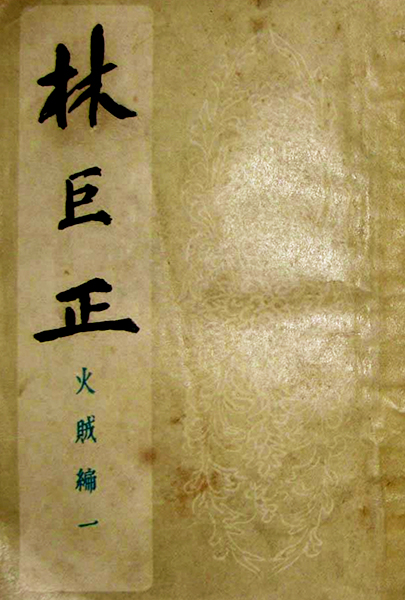 林巨正
火賊編一